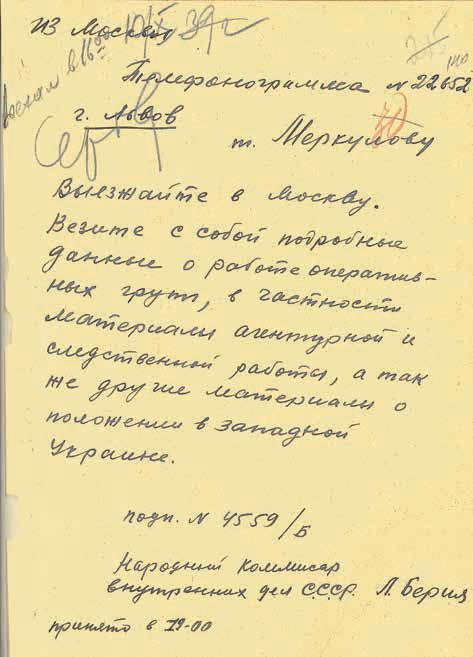 из Москвы
10/X 39 г
Телефонограмма N 22652
г. Львов
т. Меркулову
30
Выезжайте в Москву.
Везите с собой подробные
данные о работе оператив-
ных групп, в частности
материалы агентурной и
следственной работы, а так
же другие материалы о
положении в западной
Украине.
подп. N 4559/Б
Народный Коммисар
внутренних дел С.С.С.Р. Л. Берия
принято в 19-00